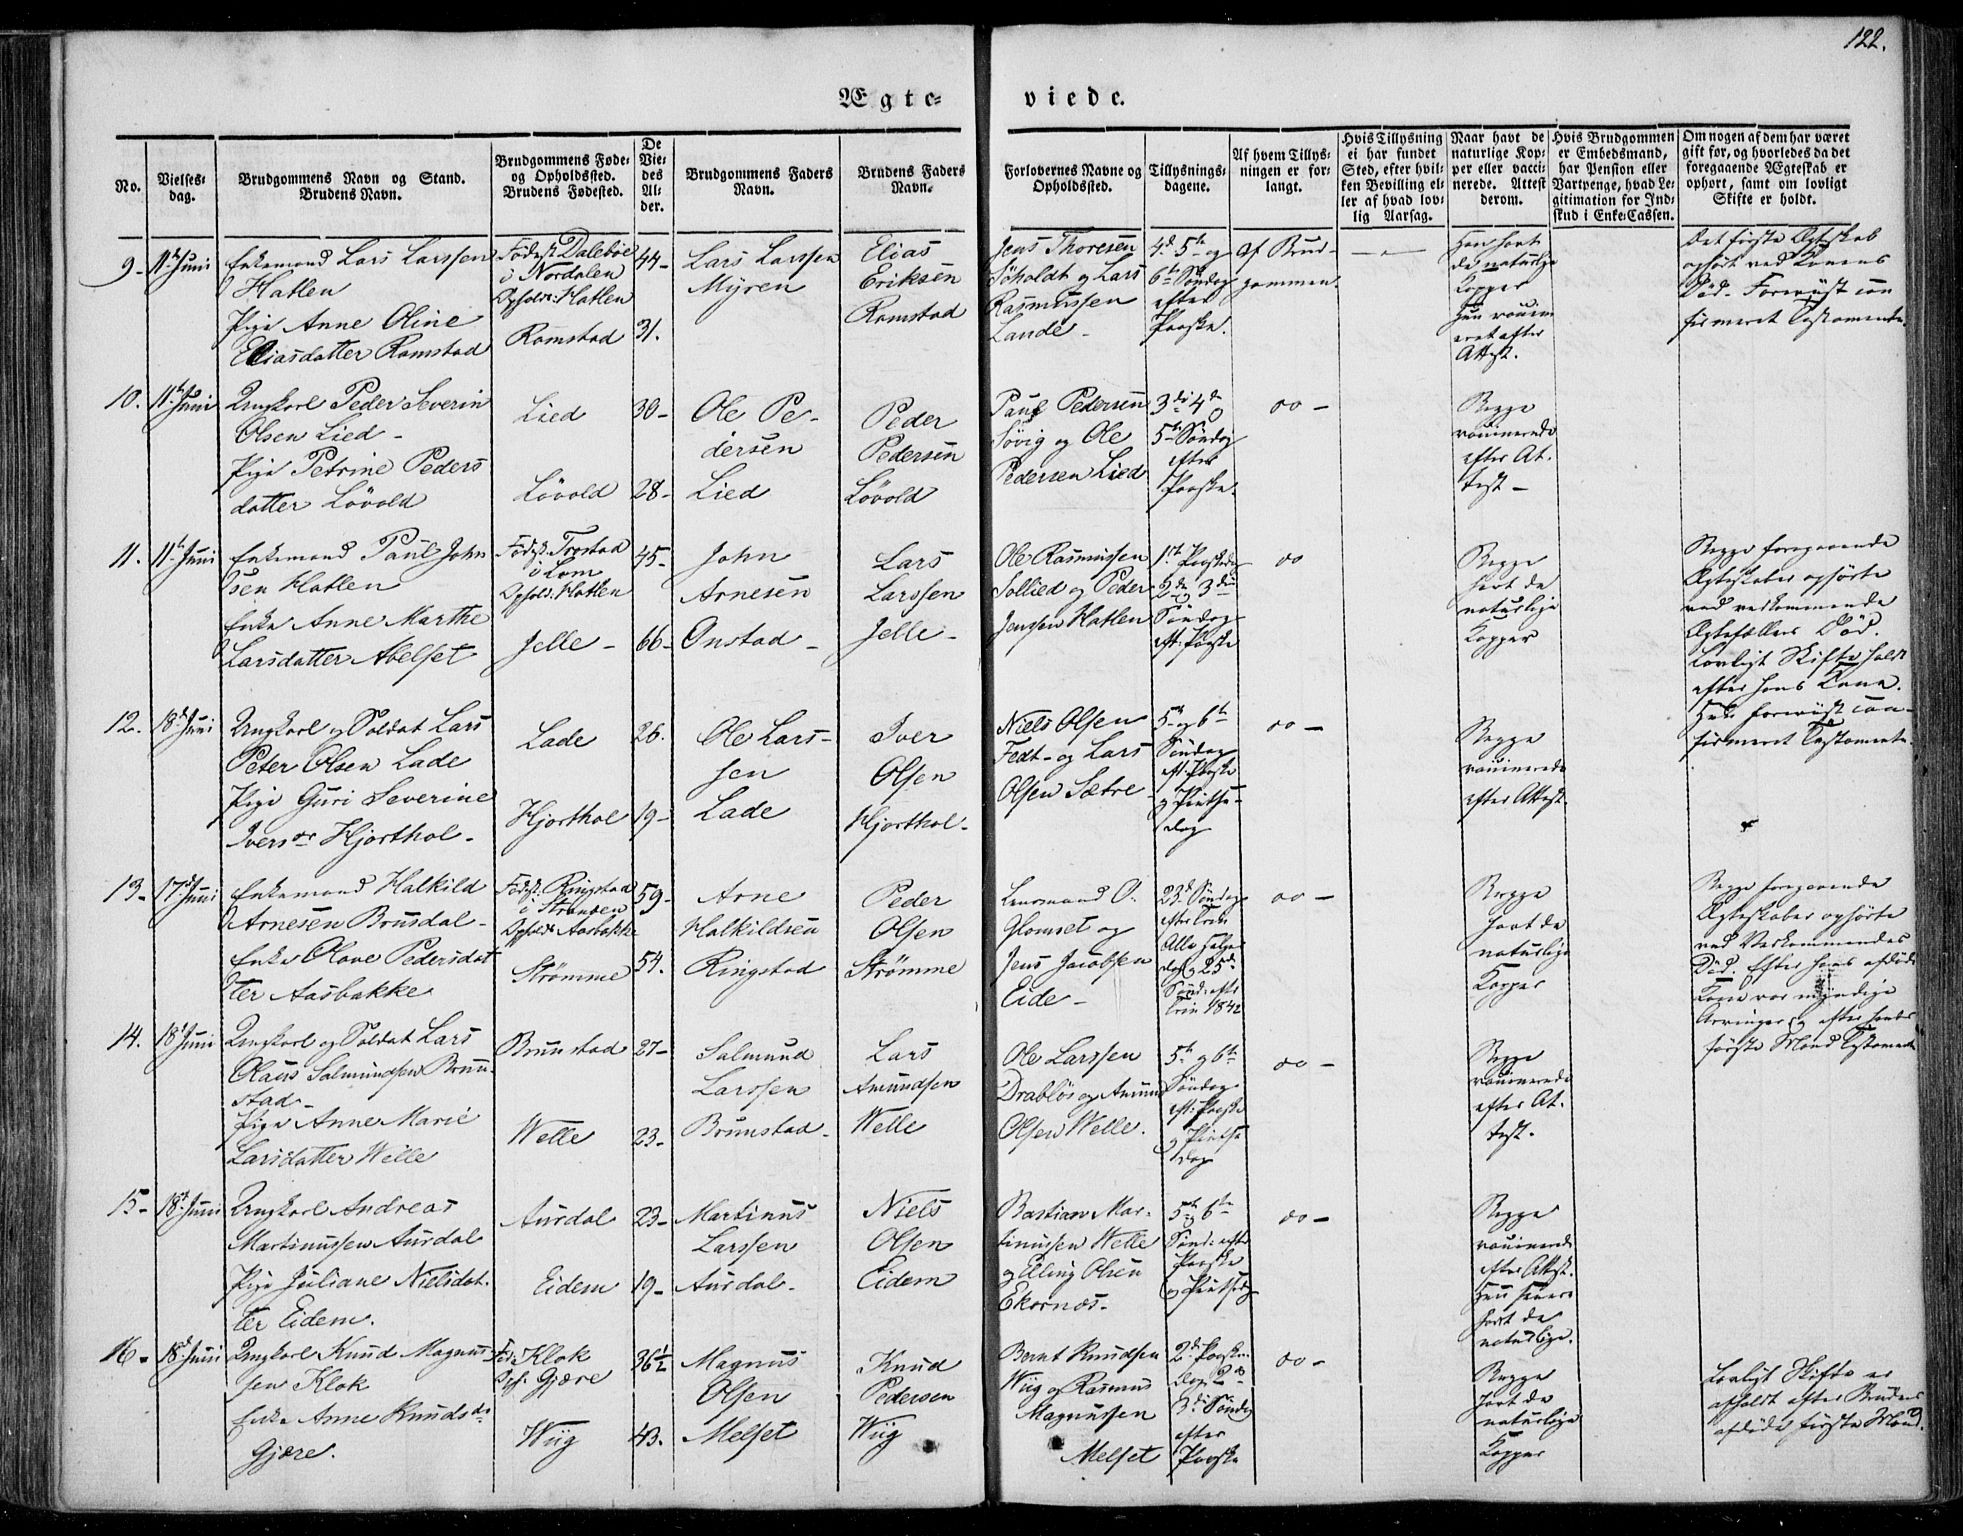 122.
Ægte-
viede.
No.
Vielses-
dag.
Brudgommens Navn og Stand.
Brudens Navn.
Brudgommens Føde-
og Opholdssted.
Brudens Fødested.
De
Vie-
des
Al-
der.
Brudgommens Faders
Navn.
Brudens Faders
Navn.
Forlovernes Navne og
Opholdssted.
Tillysnings-
dagene.
Af hvem Tillys-
ningen er for-
langt.
Hvis Tillysning
ei har fundet
Sted, efter hvil-
ken Bevilling el-
ler af hvad lov-
lig Aarsag.
Naar havt de
naturlige Kop-
per eller vacci-
nerede. Attest
derom.
Hvis Brudgommen
er Embedsmand,
har Pension eller
Vartpenge, hvad Le-
gitimation for Ind-
skud i Enke-Cassen.
Om nogen af dem har været
gift før, og hvorledes da det
foregaaende Ægteskab er
ophørt, samt om lovligt
Skifte er holdt.
9 -
11te Juni
Enkemand Lars Larssen
Hatlen
Pige Anne Oline
Eliasdatter Ramstad
Fødest. Dalebøe
i Nordalen
Opholdst: Hatlen
Ramstad
44 -
31.
Lars Larssen
Myren
Elias
Eriksen
Ramstad
Jens Thoresen
Søholdt og Lars
Rasmussen
Lande -
4de 5te og
6te Søndag
efter
Paaske.
af Brud-
gommen.
Han havt
de naturlige
Kopper
Hun vaccin
eret efter
Attest.
Det første Ægteskab
ophørt ved Konens
Død. Forevist con
firmeret Testamente.
10.
11te Juni
Ungkarl Peder Severin
Olsen Lied -
Pige Petrine Peders
datter Løvold
Lied
Løvold
30 -
28 -
Ole Pe-
dersen
Lied
Peder
Pedersen
Løvold
Paul Pedersen
Søvig og Ole
Pedersen Lied
3die 4de
5te Søndag
efter
Paaske.
do -
Begge
vaccinerede
efter At-
test -
11.
11te Juni
Enkemand Paul John
sen Hatlen
Enke Anne Marthe
Larsdatter Abelset
Fødest. Trostad
i Lom
Ophold: Hatlen
Jelle -
45 -
66 -
John
Arnesen
Onstad -
Lars
Larssen
Jelle -
Ole Rasmussen
Sollied og Peder
Jenssen Hatlen
1ste Paaskedag
2den og 3die
Søndag
eft: Paaske
do
Begge
havt de
naturlige
Kopper
Begge foregaaende
Ægteskaber ophørte
ved vedkommende
Ægtefællers Død.
Lovligt Skifte holdt
efter hans Kone.
Hun forevist con-
firmeret Testamente.
12.
18de Juni
Ungkarl og Soldat Lars
Peter Olsen Lade
Pige Guri Severine
Iversdr Hjorthol -
Lade
Hjorthol
26.
19 -
Ole Lars-
sen
Lade
Iver
Olsen
Hjorthol -
Niels Olsen
Fedt - og Lars
Olsen Sætre
5te og 6te
Søndag
eft: Paaske
og Pintse-
dag
do -
Begge
vaccinerede
efter Attest.
13 -
17de Juni
Enkemand Halkild
Arnesen Brusdal -
Enke Olave Pedersdat
ter Aasbakke
Fødest. Ringstad
i Stranden
Opholdst Aasbakke
Strømme
59 -
54.
Arne
Halkildsen
Ringstad
Peder
Olsen
Strømme
Lensmand O.
Glomset og
Jens Jacobsen
Eide -
23de Søndag
efter Trin:
Alle Helge
dag og 25de
Sønd: efter
Trin 1842
do -
Begge
havt de
naturlige
Kopper
Begge foregaaende
Ægteskaber ophørte
ved Vedkommendes
Død. Efter hans afdøde
Kone var myndige
Arvinger og efter hendes
første Mand Testamente
14.
18de Juni
Ungkarl og Soldat Lars
Olaus Salmundsen Brun-
stad -
Pige Anne Marie
Larsdatter Welle
Brunstad
Welle
27 -
23 -
Salmund
Larssen
Brunstad -
Lars
Amundsen
Welle
Ole Larssen
Drabløs og Amund
Olsen Welle.
5te og 6te
Søndag
eft: Paaske
og Pintse
dag
do -
Begge
vaccinerede
efter At-
test.
15 -
18de Juni
Ungkarl Andreas
Martinussen Aursdal
Pige Juliane Nielsdat-
ter Eidem.
Aursdal
Eidem
23 -
19 -
Martinus
Larssen
Aursdal -
Niels
Olsen
Eidem
Bastian Mar-
tinussen Welle
og Elling Olsen
Ekornæs -
5te og 6te
Sønd: efter
Paaske
og Pintsedg
do -
Begge
vaccinerede
efter Attest.
Hun senere
havt de
naturlige.
16 -
18de Juni
Ungkarl Knud Magnus-
sen Klok
Enke Anne Knudsdr
Gjære.
Fød: Klok
Oph: Gjære
Wiig
36½
43.
Magnus
Olsen
Melset
Knud
Pedersen
Wiig
Bernt Knudsen
Wiig og Rasmus
Magnussen
Melset
2den Paaske
dag 2den
3die Søndag
efter
Paaske
do -
Begge
havt de
naturlige
Kopper
Lovligt Skifte er
afholdt efter Brudens
afdøde første Mand.